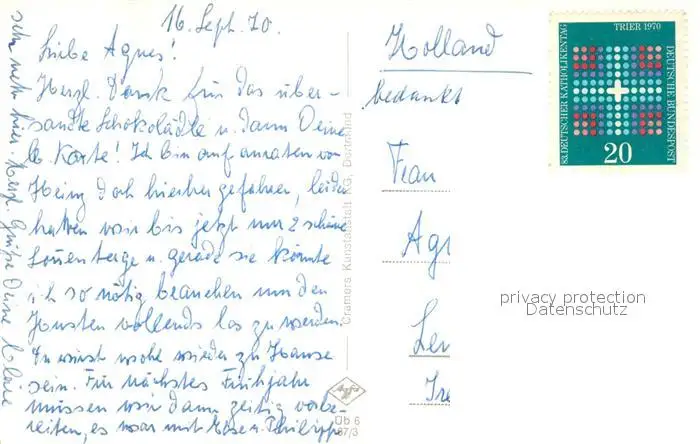 16. Sept. 70.
Liebe Agnes!
Herzl. Dank für das über-
sandte Schokolädle u. dann Deine
lb. Karte! Ich bin auf anraten von
Heinz doch hierher gefahren, leider
hatten wir bis jetzt nur 2 schöne
Sonnentage u. gerade sie könnte
ich so nötig brauchen um den
Husten vollends los zu werden.
Du wirst wohl wieder zu Hause
sein. Für nächstes Frühjahr
müssen wir dann zeitig vorbe-
reiten, es war mit Rose u. Philipp
sehr nett hier. Herzl. Grüße Deine
Cramers Kunstanstalt KG, Dortmund
Agfa
Üb 6
67/3
Holland
bedankt
Frau
Agn
Le
privacy protection
Datenschutz
83. DEUTSCHER KATHOLIKENTAG
TRIER 1970
DEUTSCHE BUNDESPOST
20